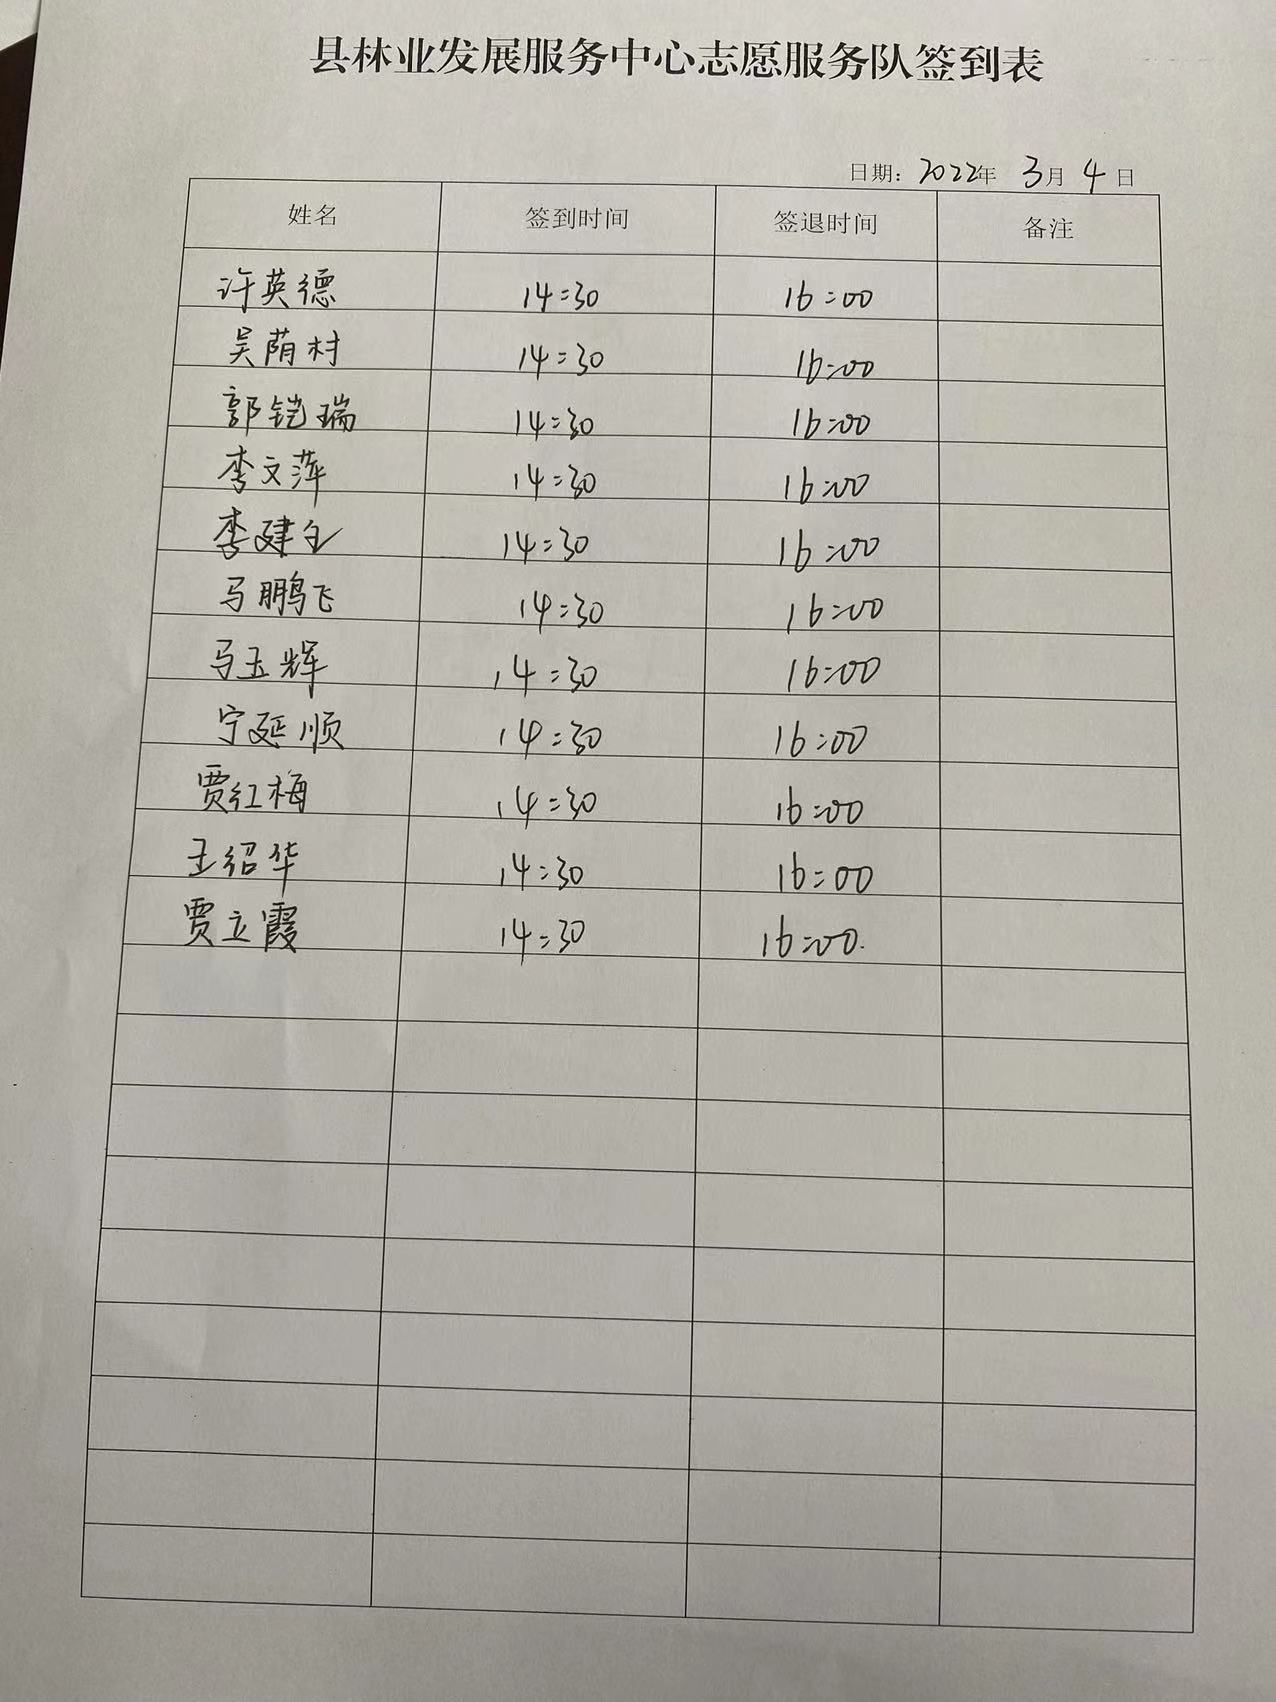 县林业发展服务中心志愿服务队签到表
日期：2022年 3月 4日
姓名 签到时间 签退时间 备注
许英德 14:30 16:00
吴荫村 14:30 16:00
郭铠瑞 14:30 16:00
李文萍 14:30 16:00
李建全 14:30 16:00
马鹏飞 14:30 16:00
马玉辉 14:30 16:00
宁延顺 14:30 16:00
贾红梅 14:30 16:00
王绍华 14:30 16:00
贾立霞 14:30 16:00